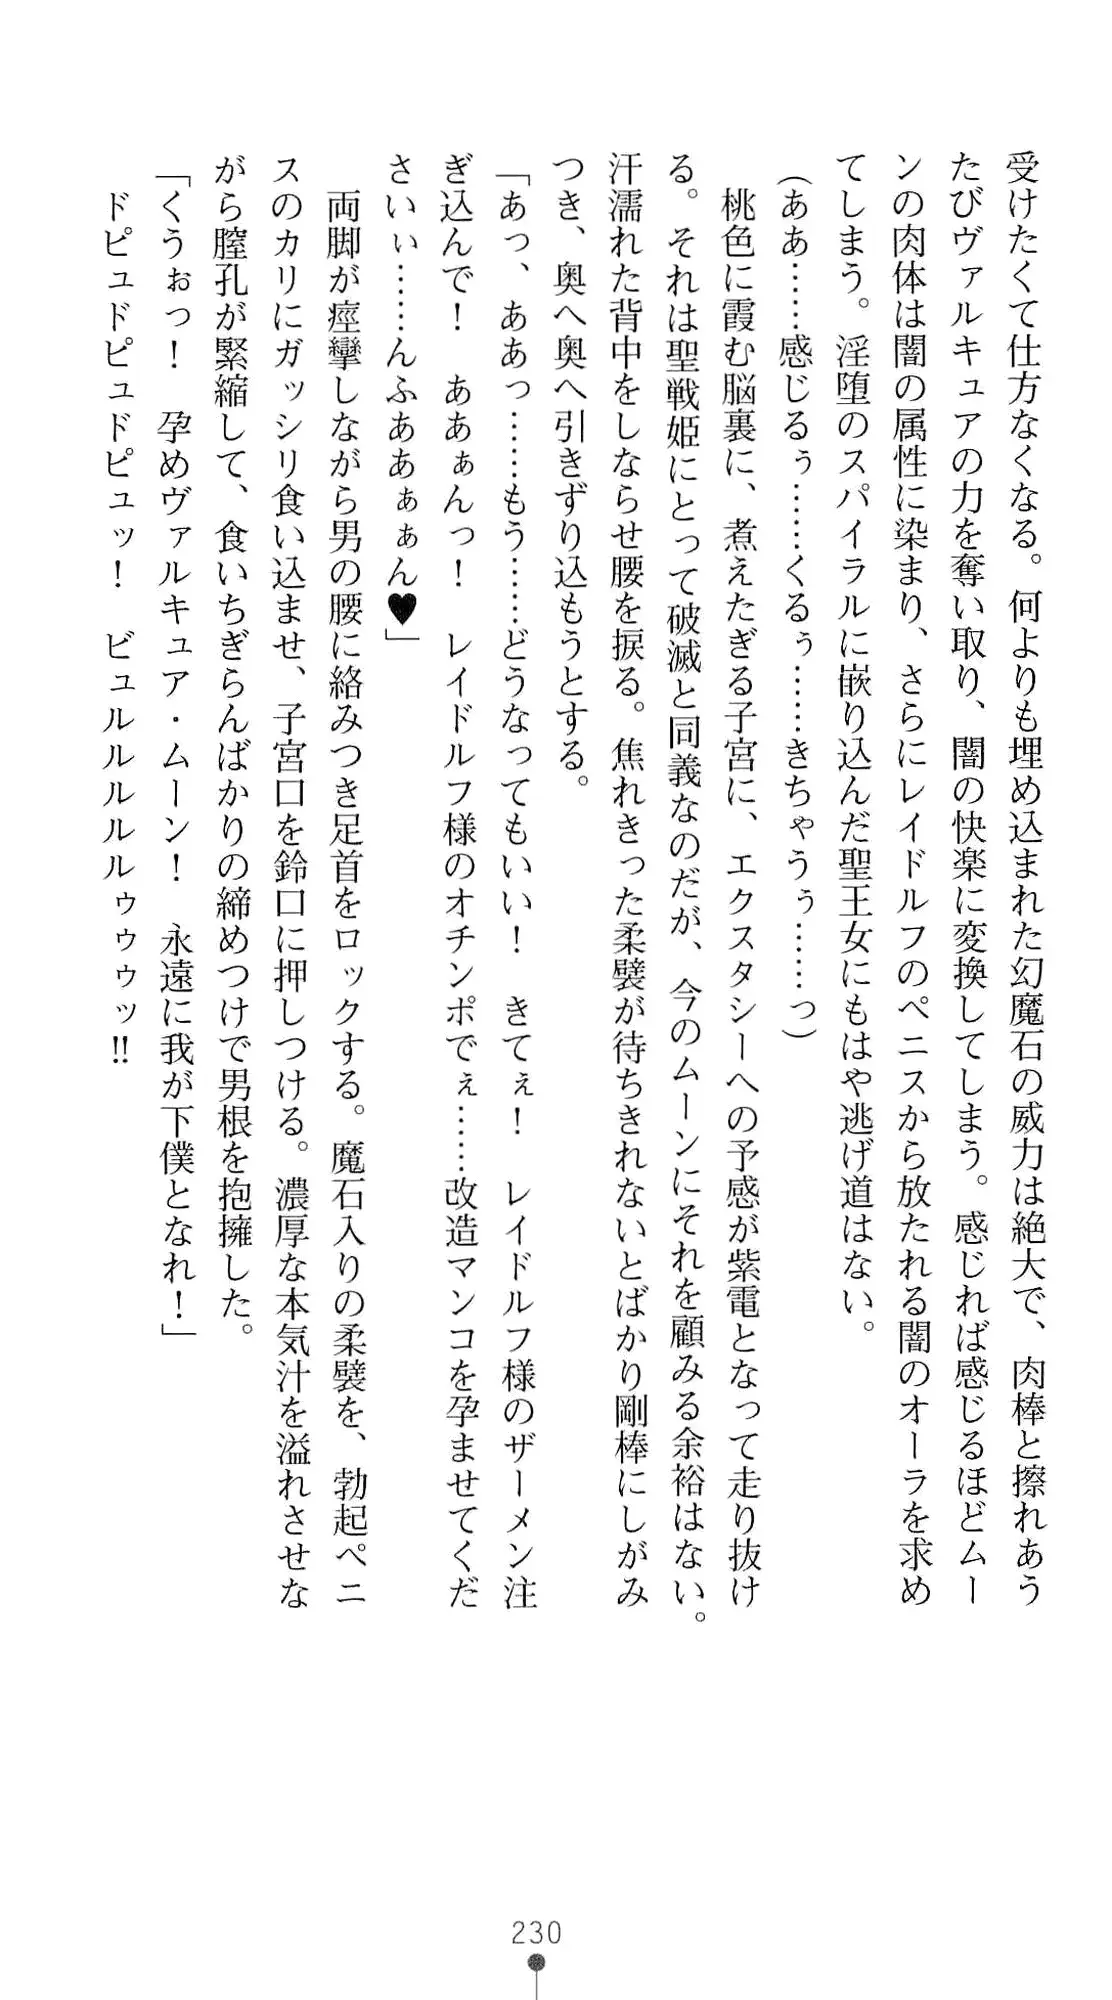 受けたくて仕方なくなる。何よりも埋め込まれた幻魔石の威力は絶大で、肉棒と擦れあう
たびヴァルキュアの力を奪い取り、闇の快楽に変換してしまう。感じれば感じるほどムー
ンの肉体は闇の属性に染まり、さらにレイドルフのペニスから放たれる闇のオーラを求め
てしまう。淫堕のスパイラルに嵌り込んだ聖王女にもはや逃げ道はない。
(ああ……感じるぅ……くるぅ……きちゃうぅ……っ)
桃色に霞む脳裏に、煮えたぎる子宮に、エクスタシーへの予感が紫電となって走り抜け
る。それは聖戦姫にとって破滅と同義なのだが、今のムーンにそれを顧みる余裕はない。
汗濡れた背中をしならせ腰を捩る。焦れきった柔襞が待ちきれないとばかり剛棒にしがみ
つき、奥へ奥へ引きずり込もうとする。
「あっ、ああっ……もう……どうなってもいい！　きてぇ！　レイドルフ様のザーメン注
ぎ込んで！　ああぁんっ！　レイドルフ様のオチンポでぇ……改造マンコを孕ませてくだ
さいぃ……んふああぁぁん♥」
両脚が痙攣しながら男の腰に絡みつき足首をロックする。魔石入りの柔襞を、勃起ペニ
スのカリにガッシリ食い込ませ、子宮口を鈴口に押しつける。濃厚な本気汁を溢れさせな
がら膣孔が緊縮して、食いちぎらんばかりの締めつけで男根を抱擁した。
「くうぉっ！　孕めヴァルキュア・ムーン！　永遠に我が下僕となれ！」
ドピュドピュドピュッ！　ビュルルルルルゥゥゥッ‼
230